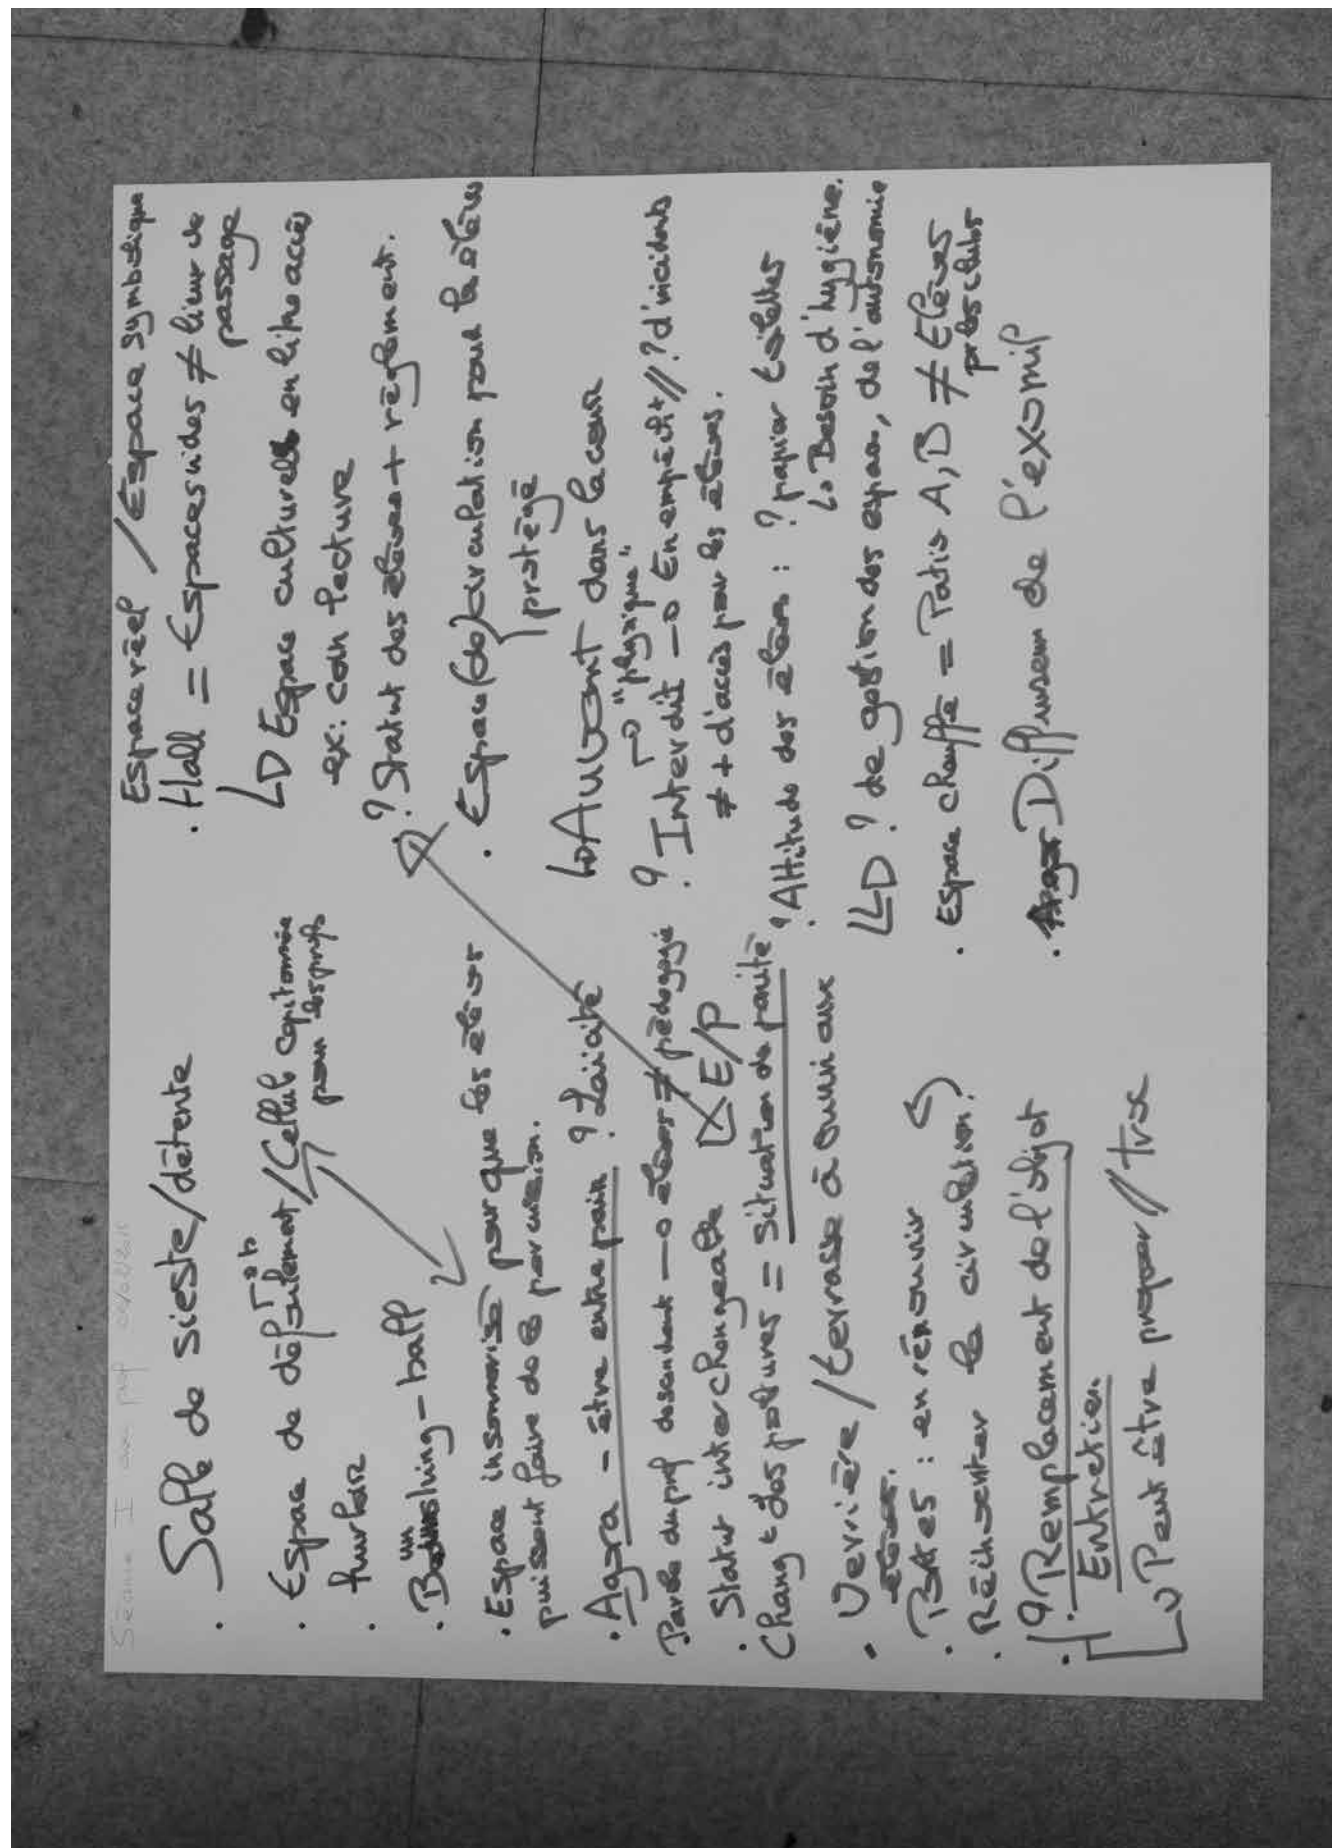 Séance I
· Salle de sieste/détente
· Espace de défoulement/Cellule capitonnée
pour les profs
· hurloir
· Bashing-ball
· Espace insonorisé pour que les élèves
puissent faire de la percussion.
· Agora - être entre pairs ? Laïcité
Parole du prof descendante → élèves ≠ pédagogie
· Statut interchangeable E/P
Changt des postures = situation de parité
· Verrière/terrasse à ouvrir aux
élèves.
· BATES : en réouvrir
· Réinventer la circulation?
· ? Remplacement de l'objet
Entretien
↳ Peut être propre // trx
Espace réel / Espace symbolique
· Hall = Espaces vides ≠ lieux de
passage
↳ Espace culturel en libre accès
ex: coin lecture
? Statut des élèves + règlement.
· Espace (de) circulation pour les élèves
protégé
↳ Auvent dans la cour
↱ "physique"
· ? Interdit → En empêcht // ? d'incidents
≠ + d'accès pour les élèves.
· ? Attitude des élèves : ? papier toilettes
↳ Besoin d'hygiène.
↳ ? de gestion des espaces, de l'autonomie
· Espace chauffé = Patio A, B ≠ Elèves
près clubs
· Diffuseur de